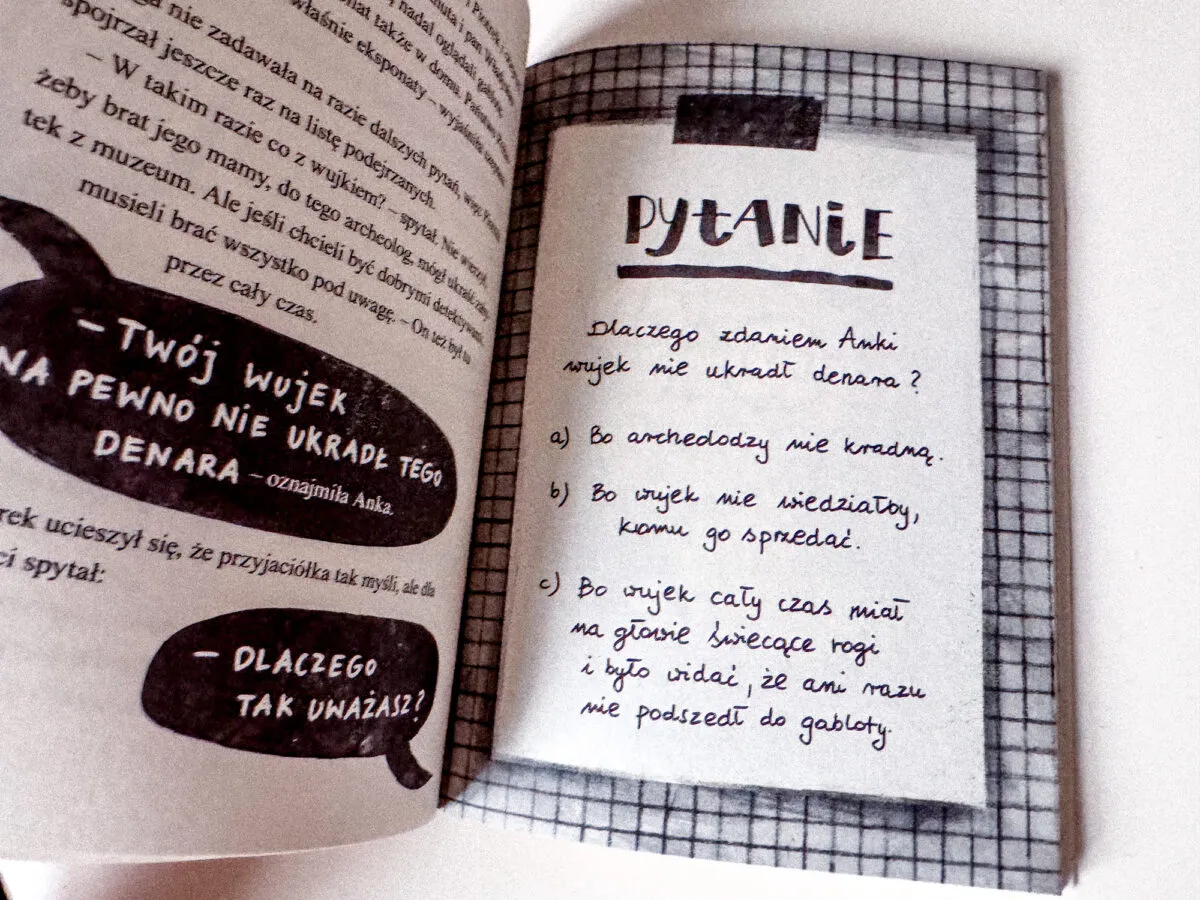 nadal oglądali gabloty
także w domu.
właśnie eksponaty – wyjaśniła
nie zadawała na razie dalszych pytań, więc
spojrzał jeszcze raz na listę podejrzanych.
– W takim razie co z wujkiem? – spytał. Nie wierzył,
żeby brat jego mamy, do tego archeolog, mógł ukraść
tek z muzeum. Ale jeśli chcieli być dobrymi detektywami,
musieli brać wszystko pod uwagę. – On też był tu
przez cały czas.
– TWÓJ WUJEK
NA PEWNO NIE UKRADŁ TEGO
DENARA – oznajmiła Anka.
rek ucieszył się, że przyjaciółka tak myśli, ale dla
ci spytał:
– DLACZEGO
TAK UWAŻASZ?
PYTANIE
Dlaczego zdaniem Anki
wujek nie ukradł denara?
a) Bo archeolodzy nie kradną.
b) Bo wujek nie wiedziałby,
komu go sprzedać.
c) Bo wujek cały czas miał
na głowie świecące rogi
i było widać, że ani razu
nie podszedł do gabloty.